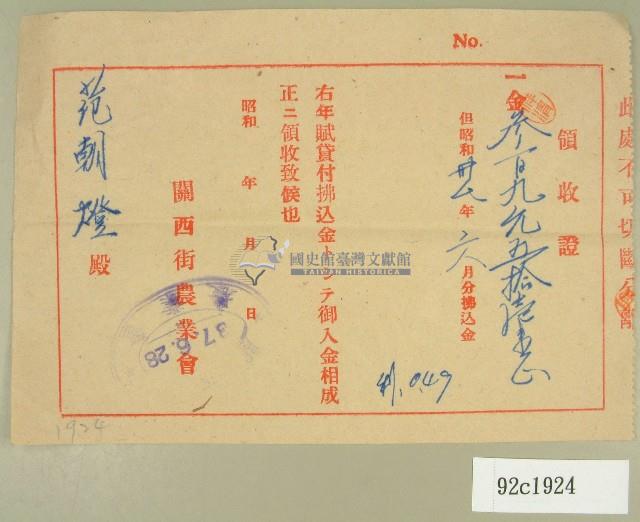 No.
此處不可切斷
領收證
一金 參百九元五拾
但昭和 年 六 月分拂込金
利. 0.49
右年賦貸付拂込金トシテ御入金相成
正ニ領收致候也
昭和 年 月 日
關西街農業會
37.6.28
范朝燈 殿
國史館臺灣文獻館
TAIWAN HISTORICA
1924
92c1924